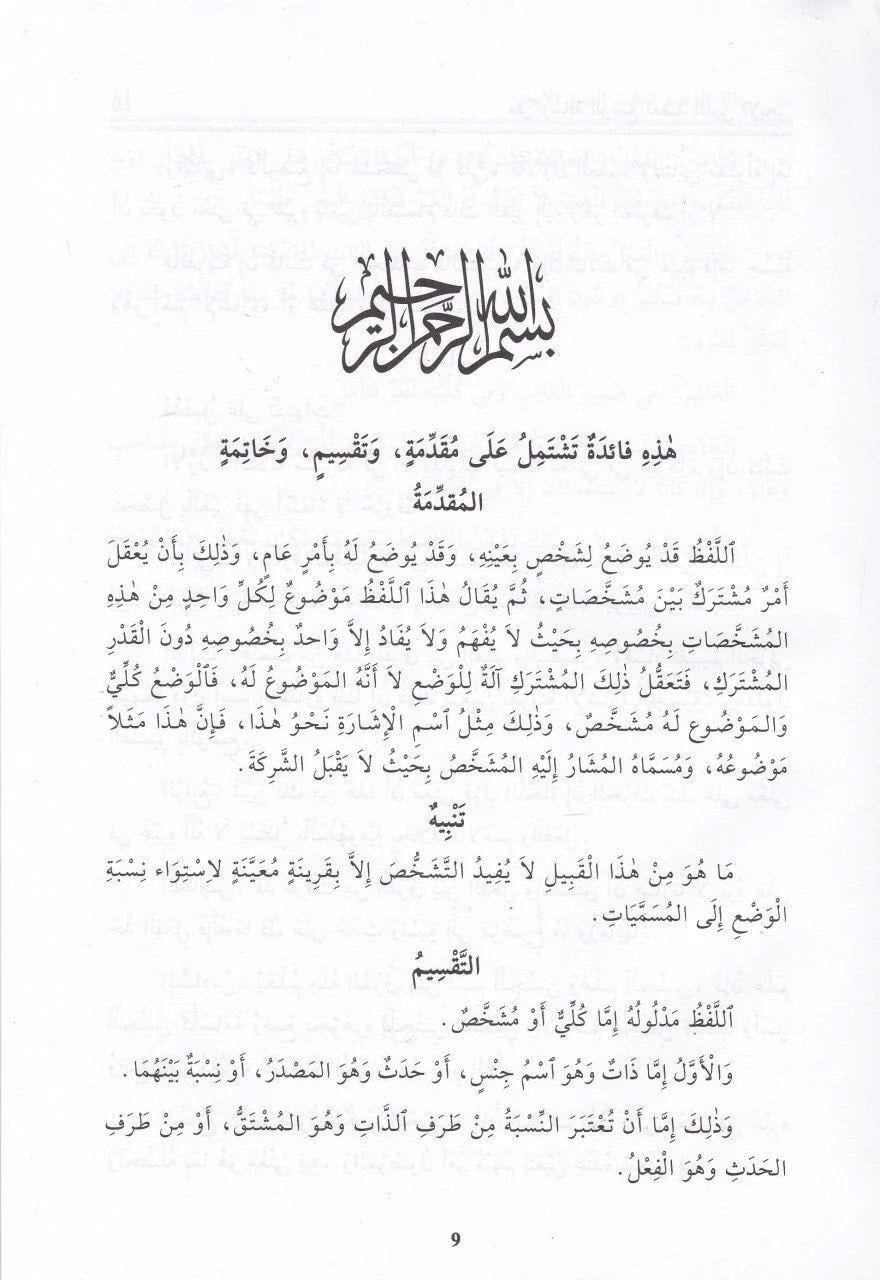 بسم الله الرحمن الرحيم
هٰذِهِ فائِدَةٌ تَشْتَمِلُ عَلَى مُقَدِّمَةٍ، وَتَقْسِيمٍ، وَخَاتِمَةٍ
المُقدِّمَةُ
اَللَّفْظُ قَدْ يُوضَعُ لِشَخْصٍ بِعَيْنِهِ، وَقَدْ يُوضَعُ لَهُ بِأَمْرٍ عَامٍ، وَذٰلِكَ بِأَنْ يُعْقَلَ
أَمْرٌ مُشْتَرَكٌ بَيْنَ مُشَخَّصَاتٍ، ثُمَّ يُقَالُ هٰذَا اَللَّفْظُ مَوْضُوعٌ لِكُلِّ وَاحِدٍ مِنْ هٰذِهِ
المُشَخَّصَاتِ بِخُصُوصِهِ بِحَيْثُ لاَ يُفْهَمُ وَلاَ يُفَادُ إِلاَّ وَاحدٌ بِخُصُوصِهِ دُونَ الْقَدْرِ
المُشْتَرَكِ، فَتَعَقُّلُ ذٰلِكَ المُشْتَرَكِ آلَةٌ لِلْوَضْعِ لاَ أَنَّهُ المَوْضُوعُ لَهُ، فَٱلْوَضْعُ كُلِّيٌّ
وَالمَوْضُوع لَهُ مُشَخَّصٌ، وَذٰلِكَ مِثْلُ ٱسْمِ الْإِشَارَةِ نَحْوُ هٰذَا، فَإِنَّ هٰذَا مَثَلاً
مَوْضُوعُهُ، وَمُسَمَّاهُ المُشَارُ إِلَيْهِ المُشَخَّصُ بِحَيْثُ لاَ يَقْبَلُ الشَّرِكَةَ.
تَنْبِيهٌ
مَا هُوَ مِنْ هٰذَا الْقَبِيلِ لاَ يُفِيدُ التَّشَخُّصَ إِلاَّ بِقَرِينَةٍ مُعَيَّنَةٍ لاسْتِوَاء نِسْبَةِ
الْوَضْعِ إِلَى المُسَمَّيَاتِ.
التَّقْسِيمُ
اَللَّفْظُ مَدْلُولُهُ إِمَّا كُلِّيٌّ أَوْ مُشَخَّصٌ.
وَالْأَوَّلُ إِمَّا ذَاتٌ وَهُوَ ٱسْمُ جِنْسٍ، أَوْ حَدَثٌ وَهُوَ المَصْدَرُ، أَوْ نِسْبَةٌ بَيْنَهُمَا.
وَذٰلِكَ إِمَّا أَنْ تُعْتَبَرَ النِّسْبَةُ مِنْ طَرَفِ ٱلذَّاتِ وَهُوَ المُشْتَقُّ، أَوْ مِنْ طَرَفِ
الحَدَثِ وَهُوَ الْفِعْلُ.
9